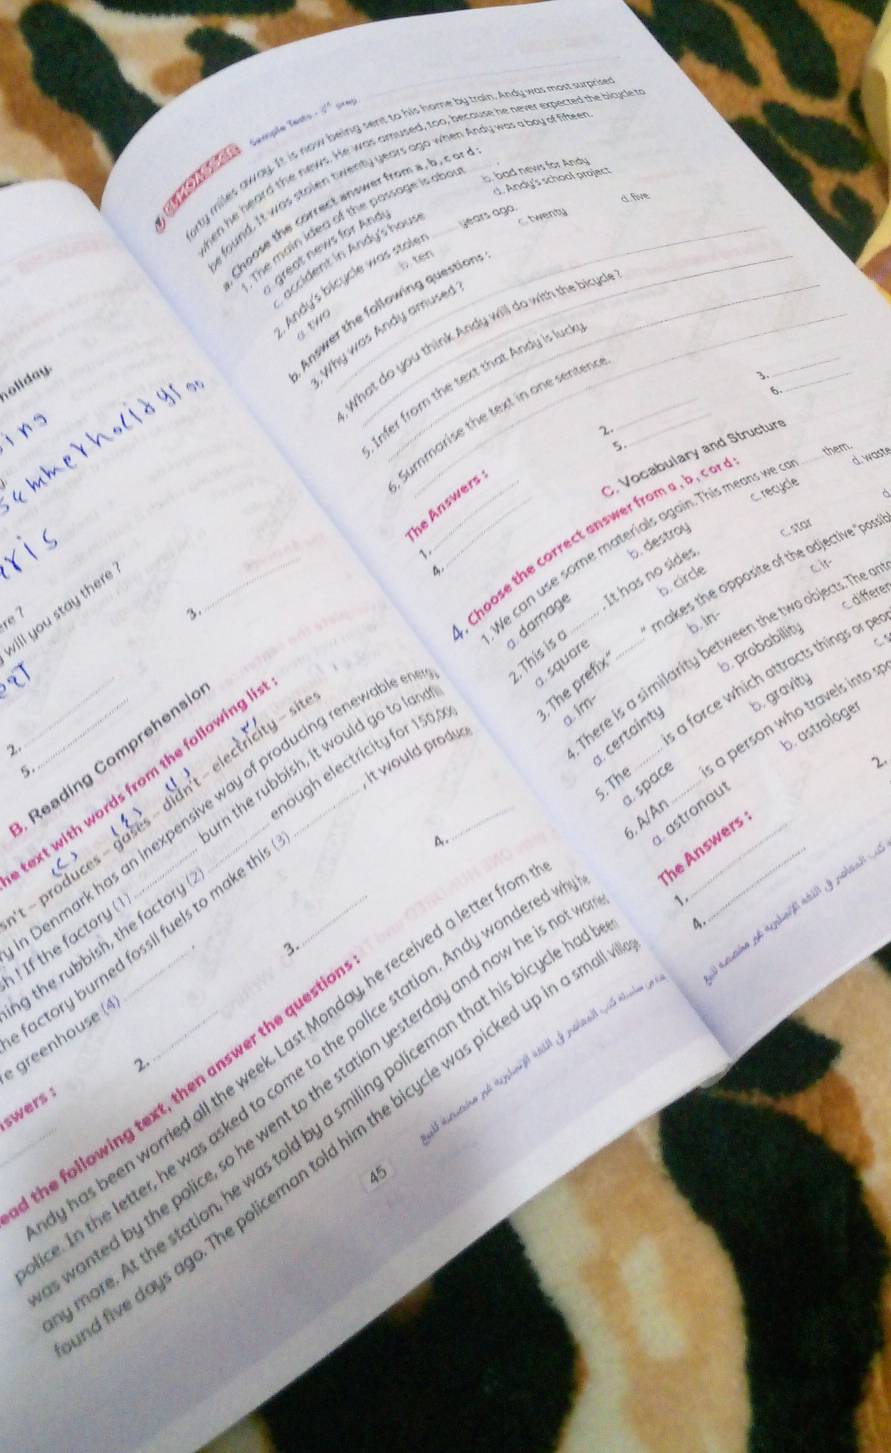 holiday.
ing
summerholidays
ris
ere ?
will you stay there ?
2.
3.
5.
B. Reading Comprehension
he text with words from the following list :
sn't – produces – gases – didn't – electricity – sites
ry in Denmark has an inexpensive way of producing renewable energy
sh ! If the factory (1) burn the rubbish, it would go to landfill
ning the rubbish, the factory (2) enough electricity for 150,000
he factory burned fossil fuels to make this (3) , it would produce
re greenhouse (4) .
nswers :
2.
3.
4.
ead the following text, then answer the questions :
Andy has been worried all the week. Last Monday, he received a letter from the
police. In the letter, he was asked to come to the police station. Andy wondered why he
was wanted by the police, so he went to the station yesterday and now he is not worried
any more. At the station, he was told by a smiling policeman that his bicycle had been
found five days ago. The policeman told him the bicycle was picked up in a small village
45
EL-MOASSER Sample Tests - 3rd prep
forty miles away. It is now being sent to his home by train. Andy was most surprised
when he heard the news. He was amused, too, because he never expected the bicycle to
be found. It was stolen twenty years ago when Andy was a boy of fifteen.
a. Choose the correct answer from a, b, c or d :
1. The main idea of the passage is about .
a. great news for Andy b. bad news for Andy
c. accident in Andy's house d. Andy's school project
2. Andy's bicycle was stolen years ago.
a. two b. ten c. twenty d. five
b. Answer the following questions :
3. Why was Andy amused ?
4. What do you think Andy will do with the bicycle ?
5. Infer from the text that Andy is lucky.
6. Summarise the text in one sentence.
The Answers :
1. 2. 3.
4. 5. 6.
C. Vocabulary and Structure
4. Choose the correct answer from a, b, c or d :
1. We can use some materials again. This means we can them.
a. damage b. destroy c. recycle d. waste
2. This is a . It has no sides.
a. square b. circle c. star d
3. The prefix " " makes the opposite of the adjective "possibl
a. im- b. in- c. ir-
4. There is a similarity between the two objects. The anto
a. certainty b. probability c. differen
5. The is a force which attracts things or peop
a. space b. gravity c. s
6. A/An is a person who travels into sp
a. astronaut b. astrologer
The Answers :
1. 2.
4.